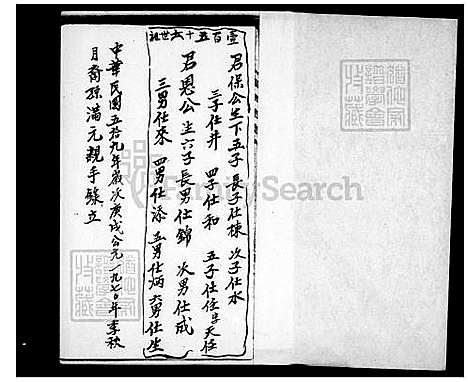 壹百五十六世祖
君保公生下五子 長子仕棟 次子仕水
三子仕井 四子仕和 五子仕任早夭
君恩公生六子長男仕錦 次男仕成
三男仕來 四男仕添 五男仕炳 六男仕生
中華民國五拾九年歲次庚戌公元一九七〇年季秋
月裔孫滿元親手錄立
FamilySearch